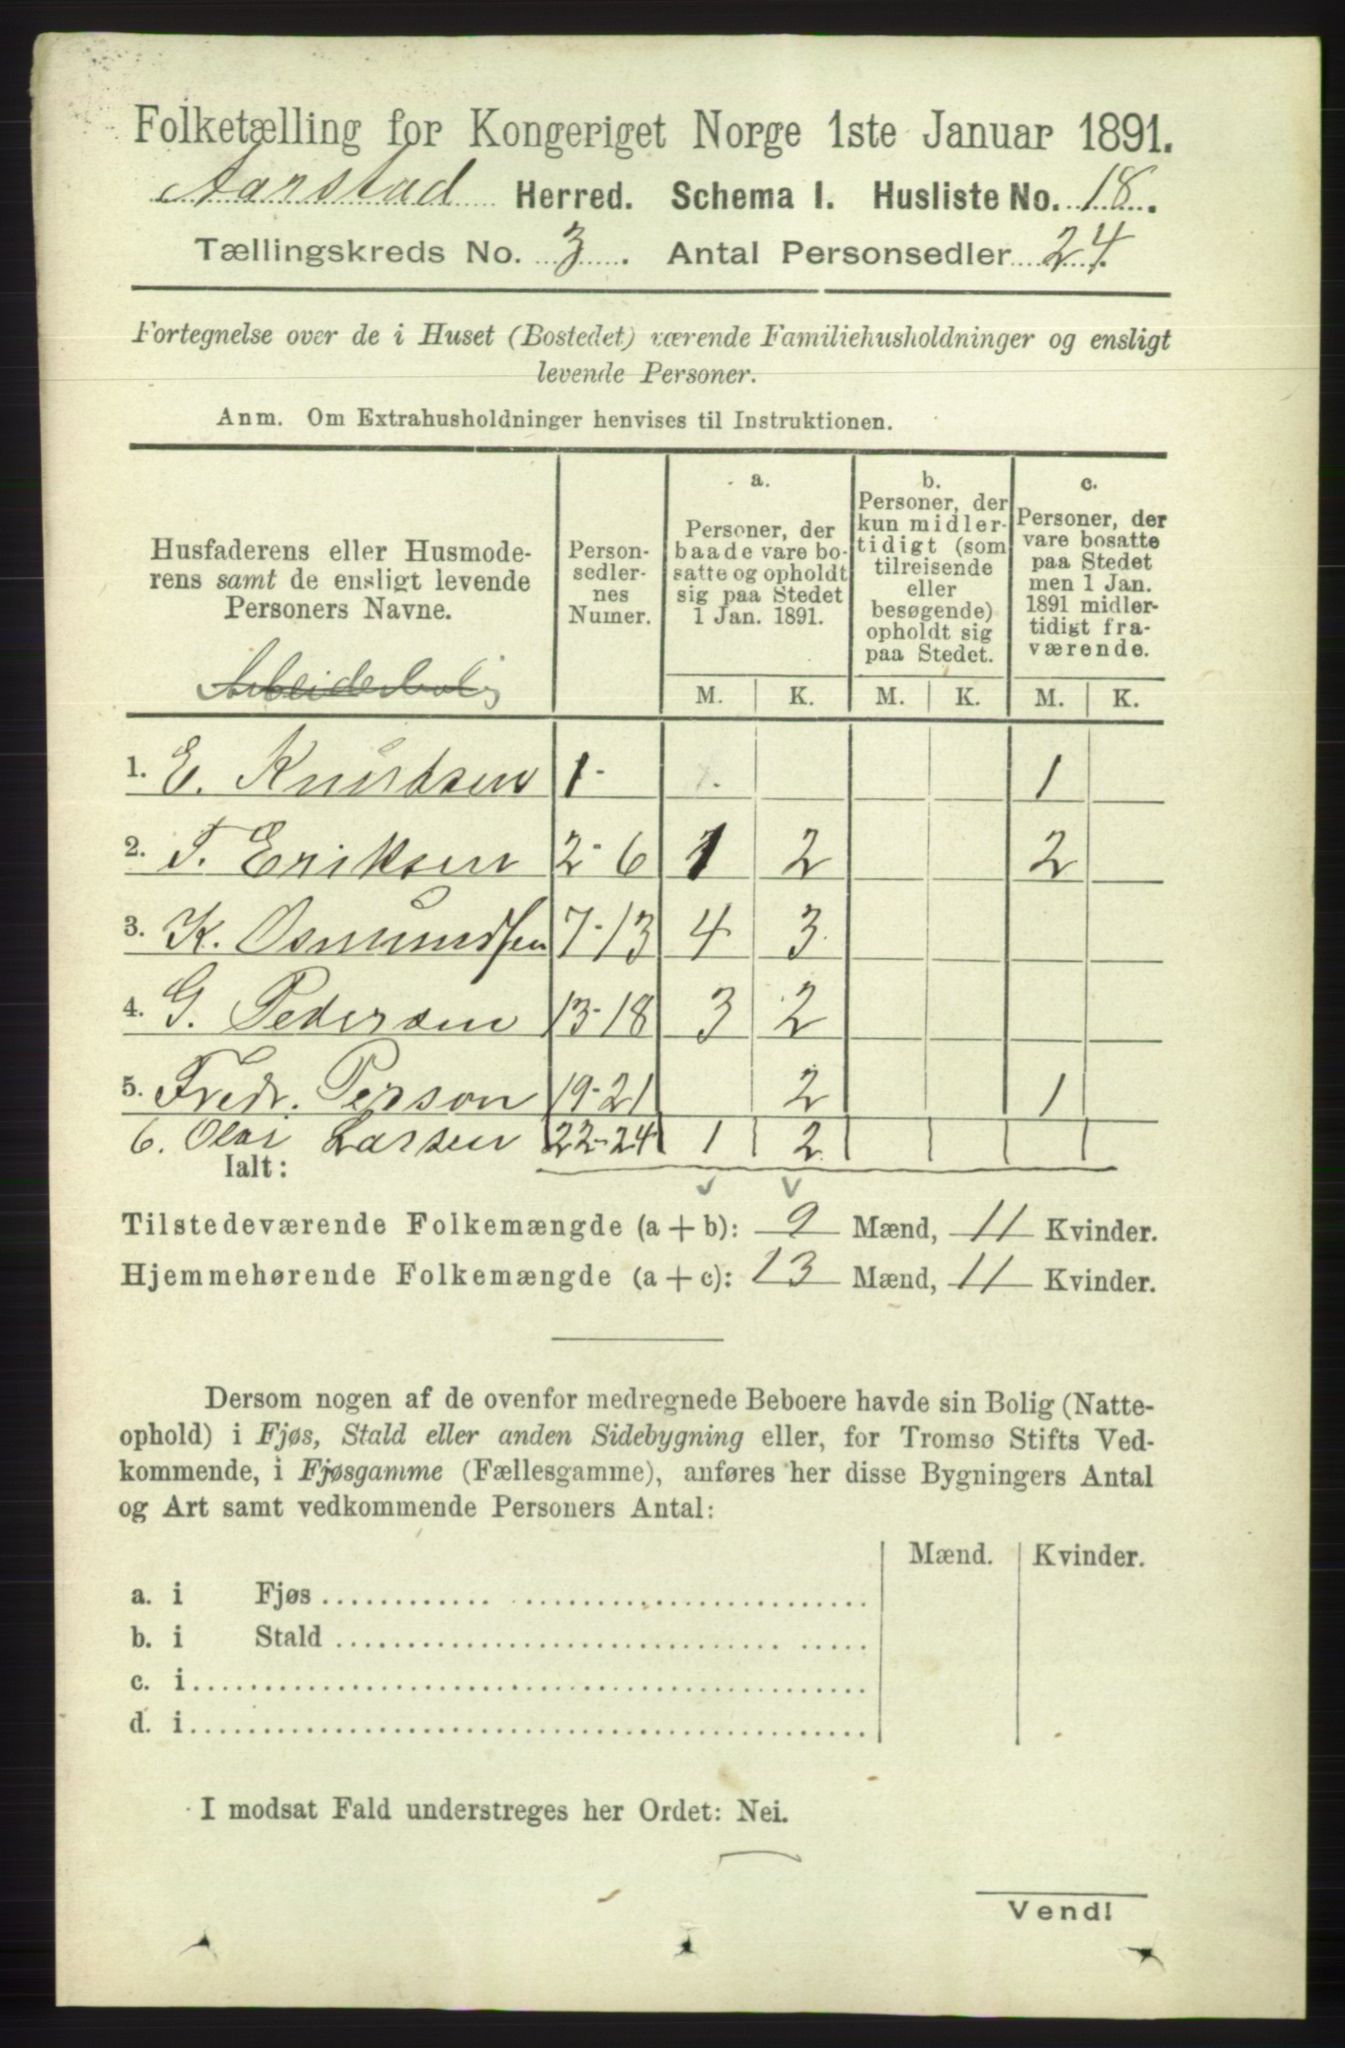 Folketælling for Kongeriget Norge 1ste Januar 1891.
Aarstad Herred. Schema I. Husliste No. 18.
Tællingskreds No. 3. Antal Personsedler 24.
Fortegnelse over de i Huset (Bostedet) værende Familiehusholdninger og ensligt
levende Personer.
Anm. Om Extrahusholdninger henvises til Instruktionen.
Husfaderens eller Husmode-
rens samt de ensligt levende
Personers Navne.
Arbeiderbolig
Person-
sedler-
nes
Numer.
a.
Personer, der
baade vare bo-
satte og opholdt
sig paa Stedet
1 Jan. 1891.
b.
Personer, der
kun midler-
tidigt (som
tilreisende
eller
besøgende)
opholdt sig
paa Stedet.
c.
Personer, der
vare bosatte
paa Stedet
men 1 Jan.
1891 midler-
tidigt fra-
værende.
M. K. M. K. M. K.
1. E. Knudsen 1- 1
2. T. Eriksen 2-6 1 2 2
3. K. Osmundsen 7-13 4 3
4. G. Pedersen 13-18 3 2
5. Fredr. Person 19-21 2 1
6. Olai Larsen 22-24 1 2
Ialt:
Tilstedeværende Folkemængde (a + b): 9 Mænd, 11 Kvinder.
Hjemmehørende Folkemængde (a + c): 13 Mænd, 11 Kvinder.
Dersom nogen af de ovenfor medregnede Beboere havde sin Bolig (Natte-
ophold) i Fjøs, Stald eller anden Sidebygning eller, for Tromsø Stifts Ved-
kommende, i Fjøsgamme (Fællesgamme), anføres her disse Bygningers Antal
og Art samt vedkommende Personers Antal:
Mænd. Kvinder.
a. i Fjøs
b. i Stald
c. i
d. i
I modsat Fald understreges her Ordet: Nei.
Vend!